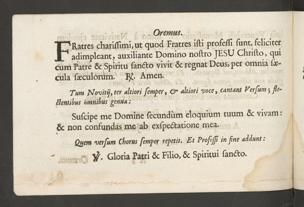 Oremus.
FRatres charissimi, ut quod Fratres isti professi sunt, feliciter
adimpleant, auxiliante Domino nostro JESU Christo, qui
cum Patre & Spiritu sancto vivit & regnat Deus, per omnia sæ-
cula sæculorum. ℟. Amen.
Tum Novitij, ter altiori semper, & altiori voce, cantant Versum; fle-
ctentibus omnibus genua:
Suscipe me Domine secundùm eloquium tuum & vivam:
& non confundas me ab exspectatione mea.
Quem versum Chorus semper repetit. Et Professi in fine addunt:
℣. Gloria Patri & Filio, & Spiritui sancto.